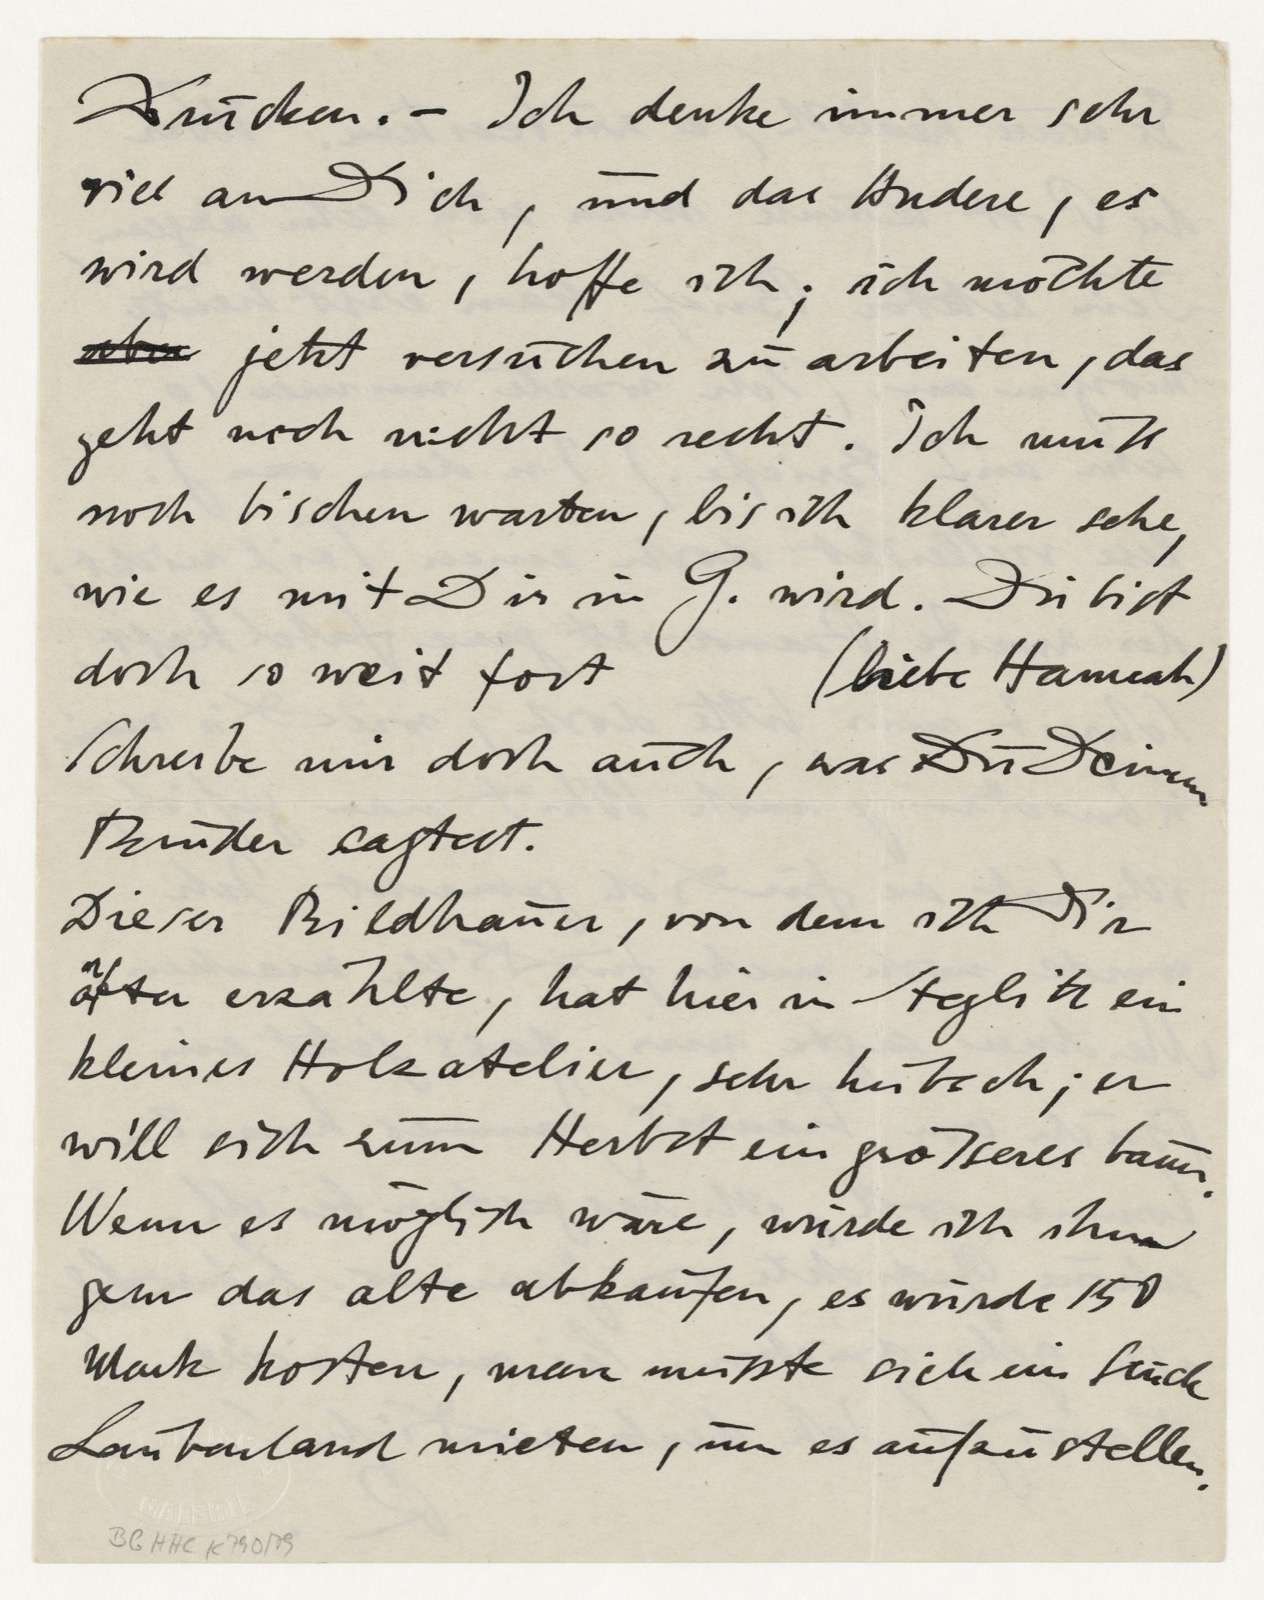 Drucken. – Ich denke immer sehr
viel an Dich, und das Andere, es
wird werden, hoffe ich; ich möchte
aber jetzt versuchen zu arbeiten, das
geht noch nicht so recht. Ich muß
noch bischen warten, bis ich klarer sehe,
wie es mit Dir in G. wird. Du bist
doch so weit fort (liebe Hannah)
Schreibe mir doch auch, was Du Deinem
Bruder sagtest.
Dieser Bildhauer, von dem ich Dir
öfter erzählte, hat hier in Steglitz ein
kleines Holzatelier, sehr hübsch; er
will sich zum Herbst ein größeres baun.
Wenn es möglich wäre, würde ich ihm
gern das alte abkaufen, es würde 150
Mark kosten, man müßte sich ein Stück
Laubenland mieten, um es aufzustellen.
BG HHC K 790/79